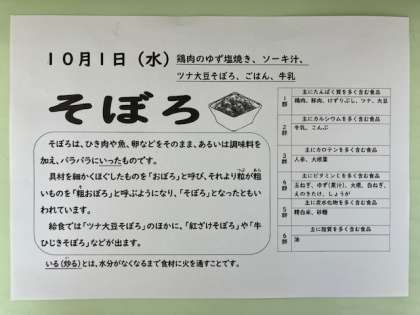 10月1日（水）
鶏肉のゆず塩焼き、ソーキ汁、
ツナ大豆そぼろ、ごはん、牛乳
そぼろ
そぼろは、ひき肉や魚、卵などをそのまま、あるいは調味料を
加え、パラパラにいったものです。
具材を細かくほぐしたものを「おぼろ」と呼び、それより粒が粗
いものを「粗おぼろ」と呼ぶようになり、「そぼろ」となったともい
われています。
給食では「ツナ大豆そぼろ」のほかに、「紅ざけそぼろ」や「牛
ひじきそぼろ」などが出ます。
いる（炒る）とは、水分がなくなるまで食材に火を通すことです。
主にたんぱく質を多く含む食品
1群
鶏肉、豚肉、けずりぶし、ツナ、大豆
主にカルシウムを多く含む食品
2群
牛乳、こんぶ
主にカロテンを多く含む食品
3群
人参、大根葉
主にビタミンCを多く含む食品
4群
玉ねぎ、ゆず（果汁）、大根、白ねぎ、
えのきたけ、しょうが
主に炭水化物を多く含む食品
5群
精白米、砂糖
主に脂質を多く含む食品
6群
油